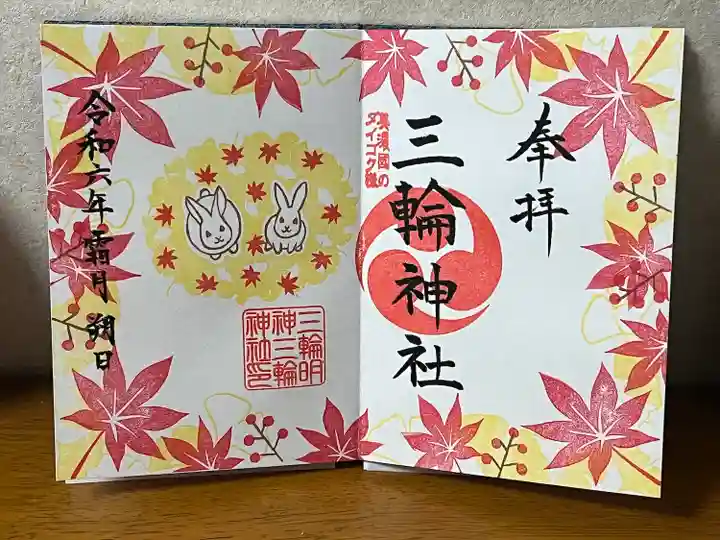 奉拝
三輪神社
美濃國の
ダイコク様
三輪明
神三輪
神社印
令和六年霜月朔日